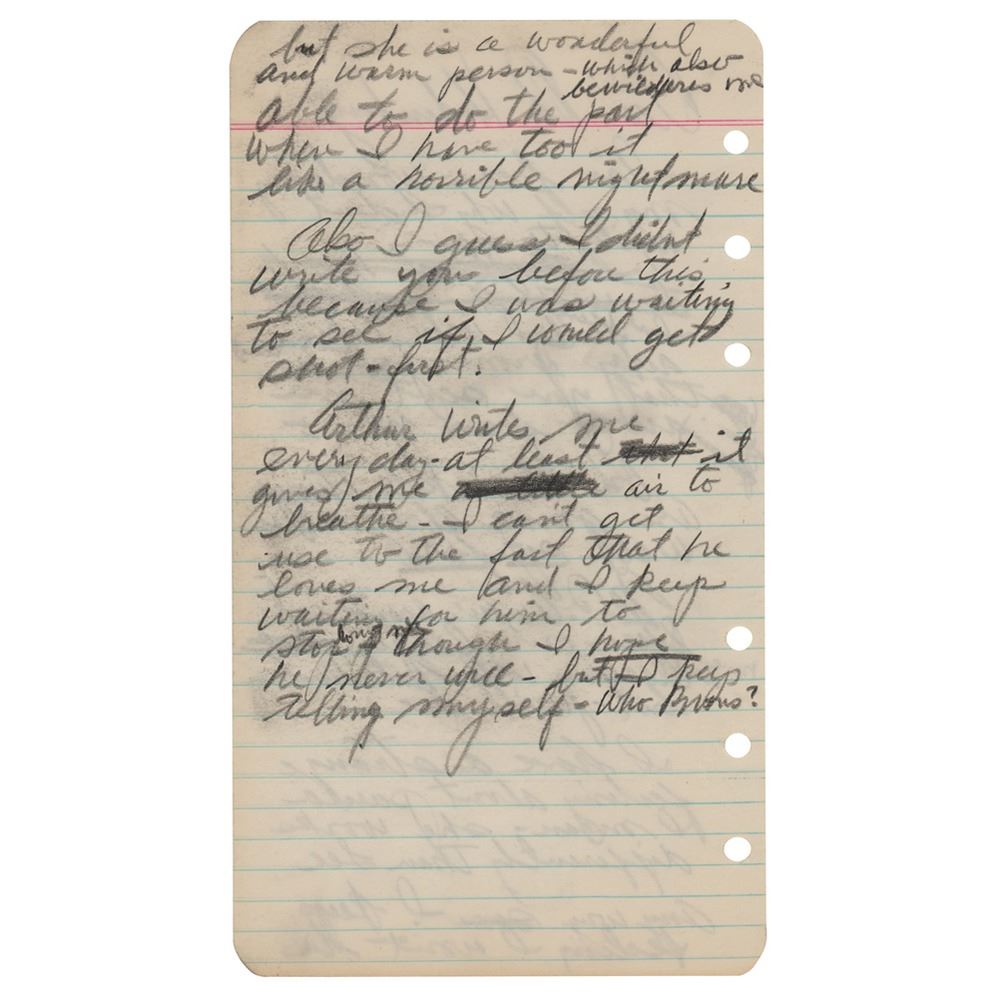 but she is a wonderful
and warm person – which also
bewilderes me
able to do the part
where I have too it
like a horrible nightmare
Also I guess I didn't
write you before this
because I was waiting
to see if I would get
shot – first.
Arthur writes me
everyday – at least it
gives me air to
breathe – I can't get
use to the fact that he
loves me and I keep
waiting for him to
stop loving me though I hope
he never will – but I keep
telling myself – who knows?